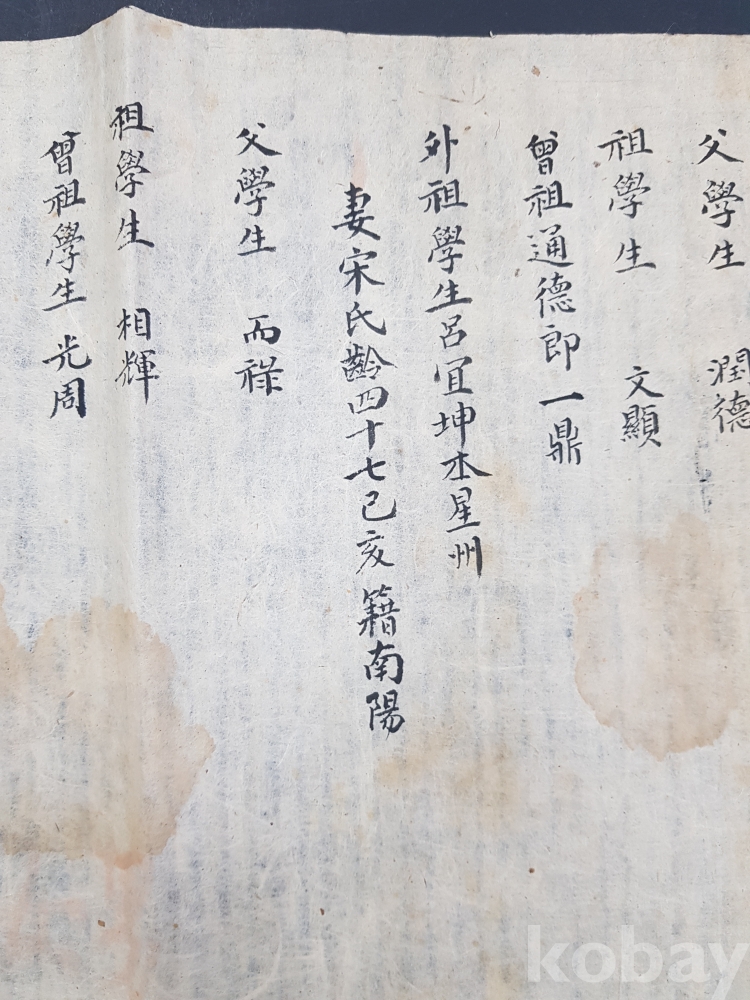 父學生 潤德
祖學生 文顯
曾祖通德郎一鼎
外祖學生呂宜坤本星州
妻宋氏齡四十七己亥籍南陽
父學生 丙祿
祖學生 相輝
曾祖學生光周
kobay